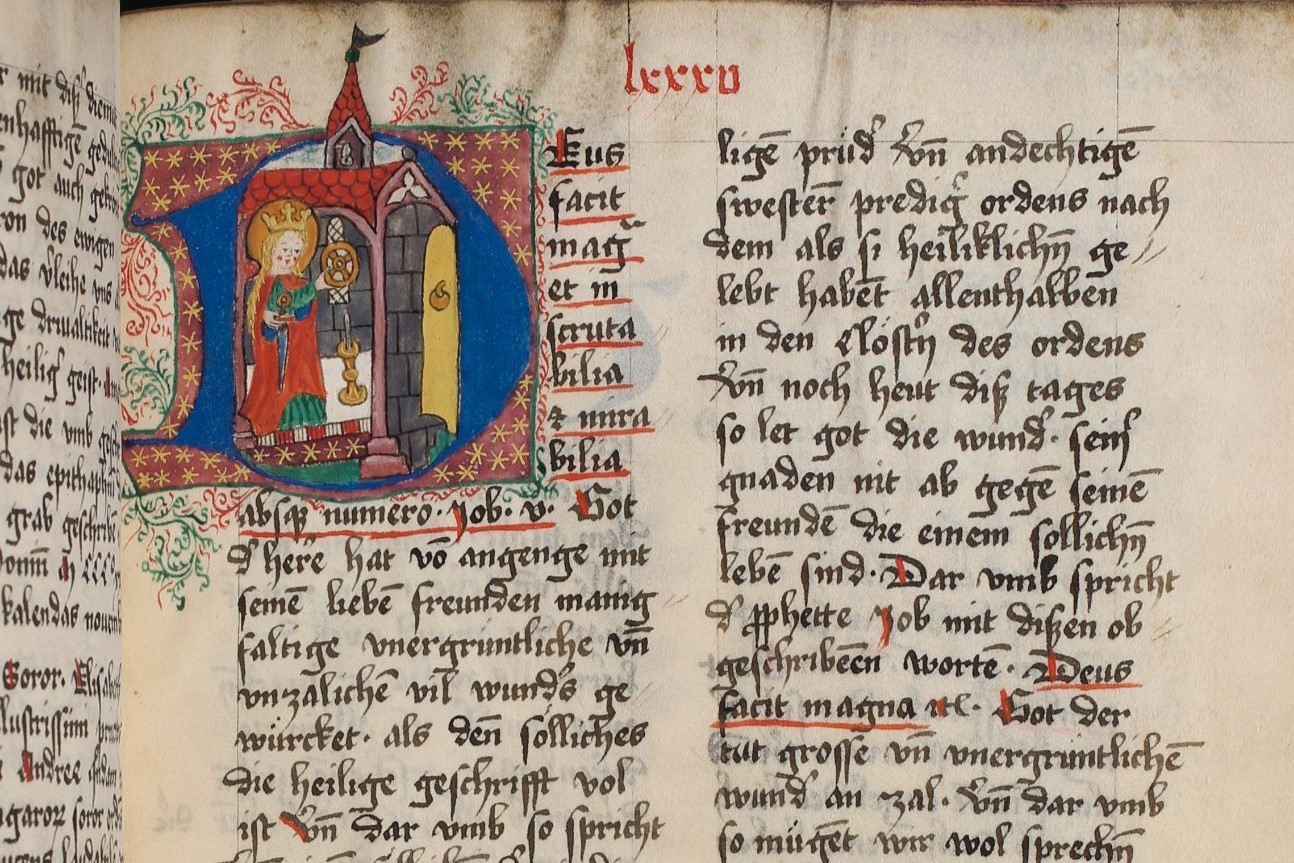 lxxxv
Eus
facit
mag̅
et in
scruta
bilia
⁊ mira
bilia
absq̢ numero. Job. v. Got
d' here hat vo̅ angenge mit
seine̅ liebe̅ freunden manig
faltige vnergruntliche vn̅
vnzaliche̅ vil wund's ge
würcket. als den̅ solliches
die heilige geschrifft vol
ist Vn̅ dar vmb so spricht
lige̅ prüd' vn̅ andechtige̅
swester̅ predig' ordens nach
dem als si heiliklichn̅ ge
lebt habe̅t allenthalben
in den Clöst'n des ordens
Vn̅ noch heut disz tages
so let got die wund'. seins
gnaden nit ab gege̅ seine̅
freunde̅ die einem sollichn̅
lebe̅ sind. Dar vmb spricht
d' p̱phette Job mit diszen ob
geschribee̅n worte̅. Deus
facit magna etc. Got der
tut grosse vn̅ vnergruntliche̅
wund' an zal. Vn̅ dar vmb
so müge̅t wir wol sprechn̅
mit disz
got auch
des ewigen
das v'leihe vns
heilig' geist.
ist die vmb
das
grab geschribe̅
kalendas
Soror. Elisabeth
Andree
soror